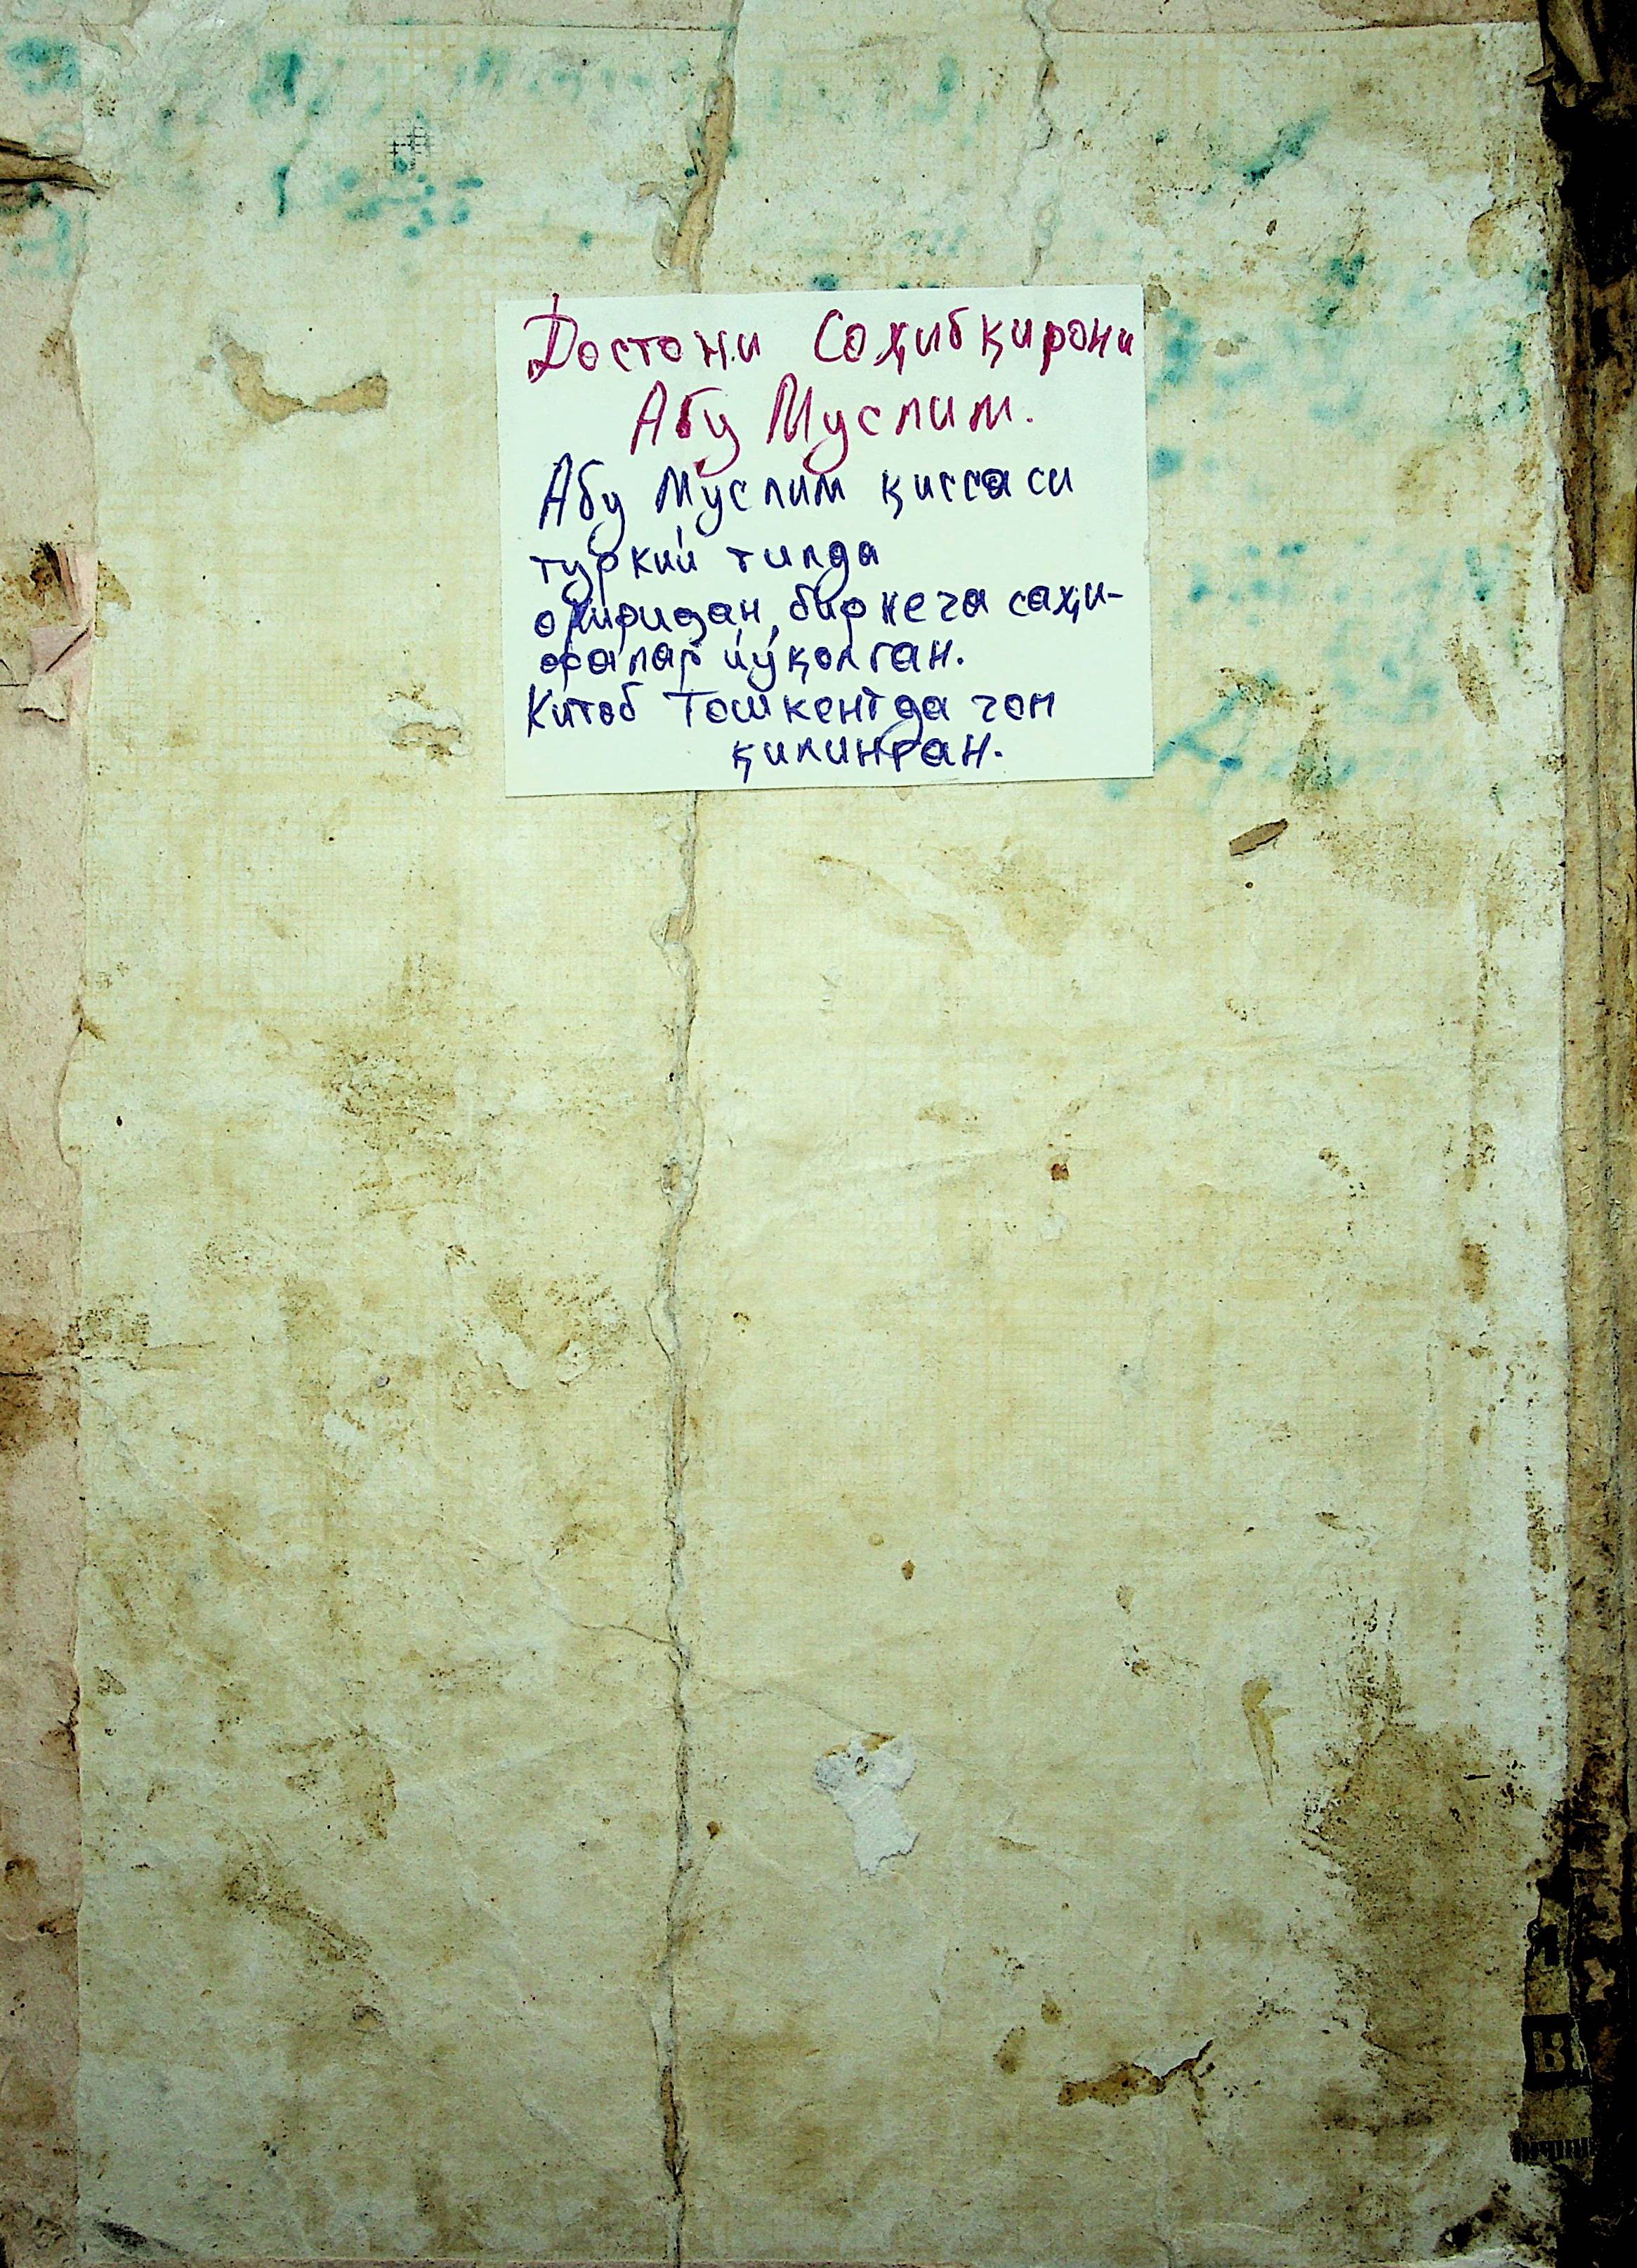 Достони Соҳибқирони
Абу Муслим.
Абу Муслим қиссаси
туркий тилда
охиридан бир неча саҳи-
фалар йўқолган.
Китоб Тошкентда чоп
қилинган.